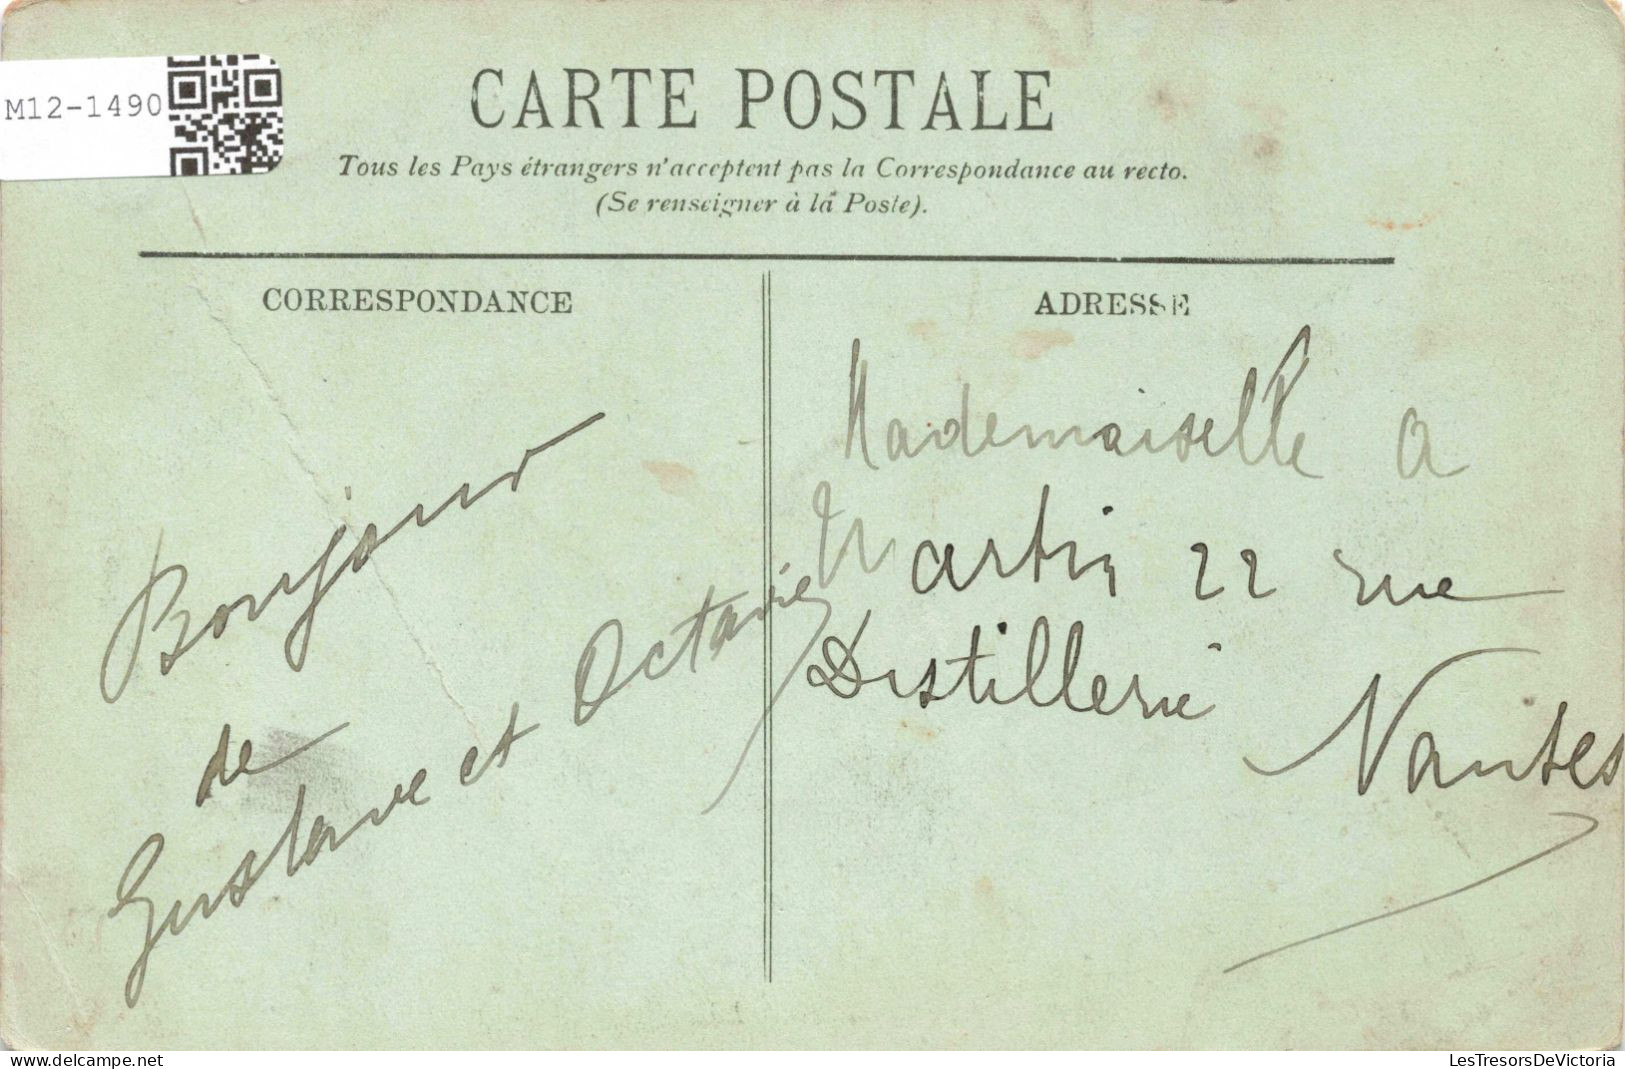 M12-1490
CARTE POSTALE
Tous les Pays étrangers n'acceptent pas la Correspondance au recto.
(Se renseigner à la Poste).
CORRESPONDANCE
Bonjour
de
Gustave et Octavie
ADRESSE
Mademoiselle A
Martin 22 rue
Distillerie
Nantes
www.delcampe.net
LesTresorsDeVictoria